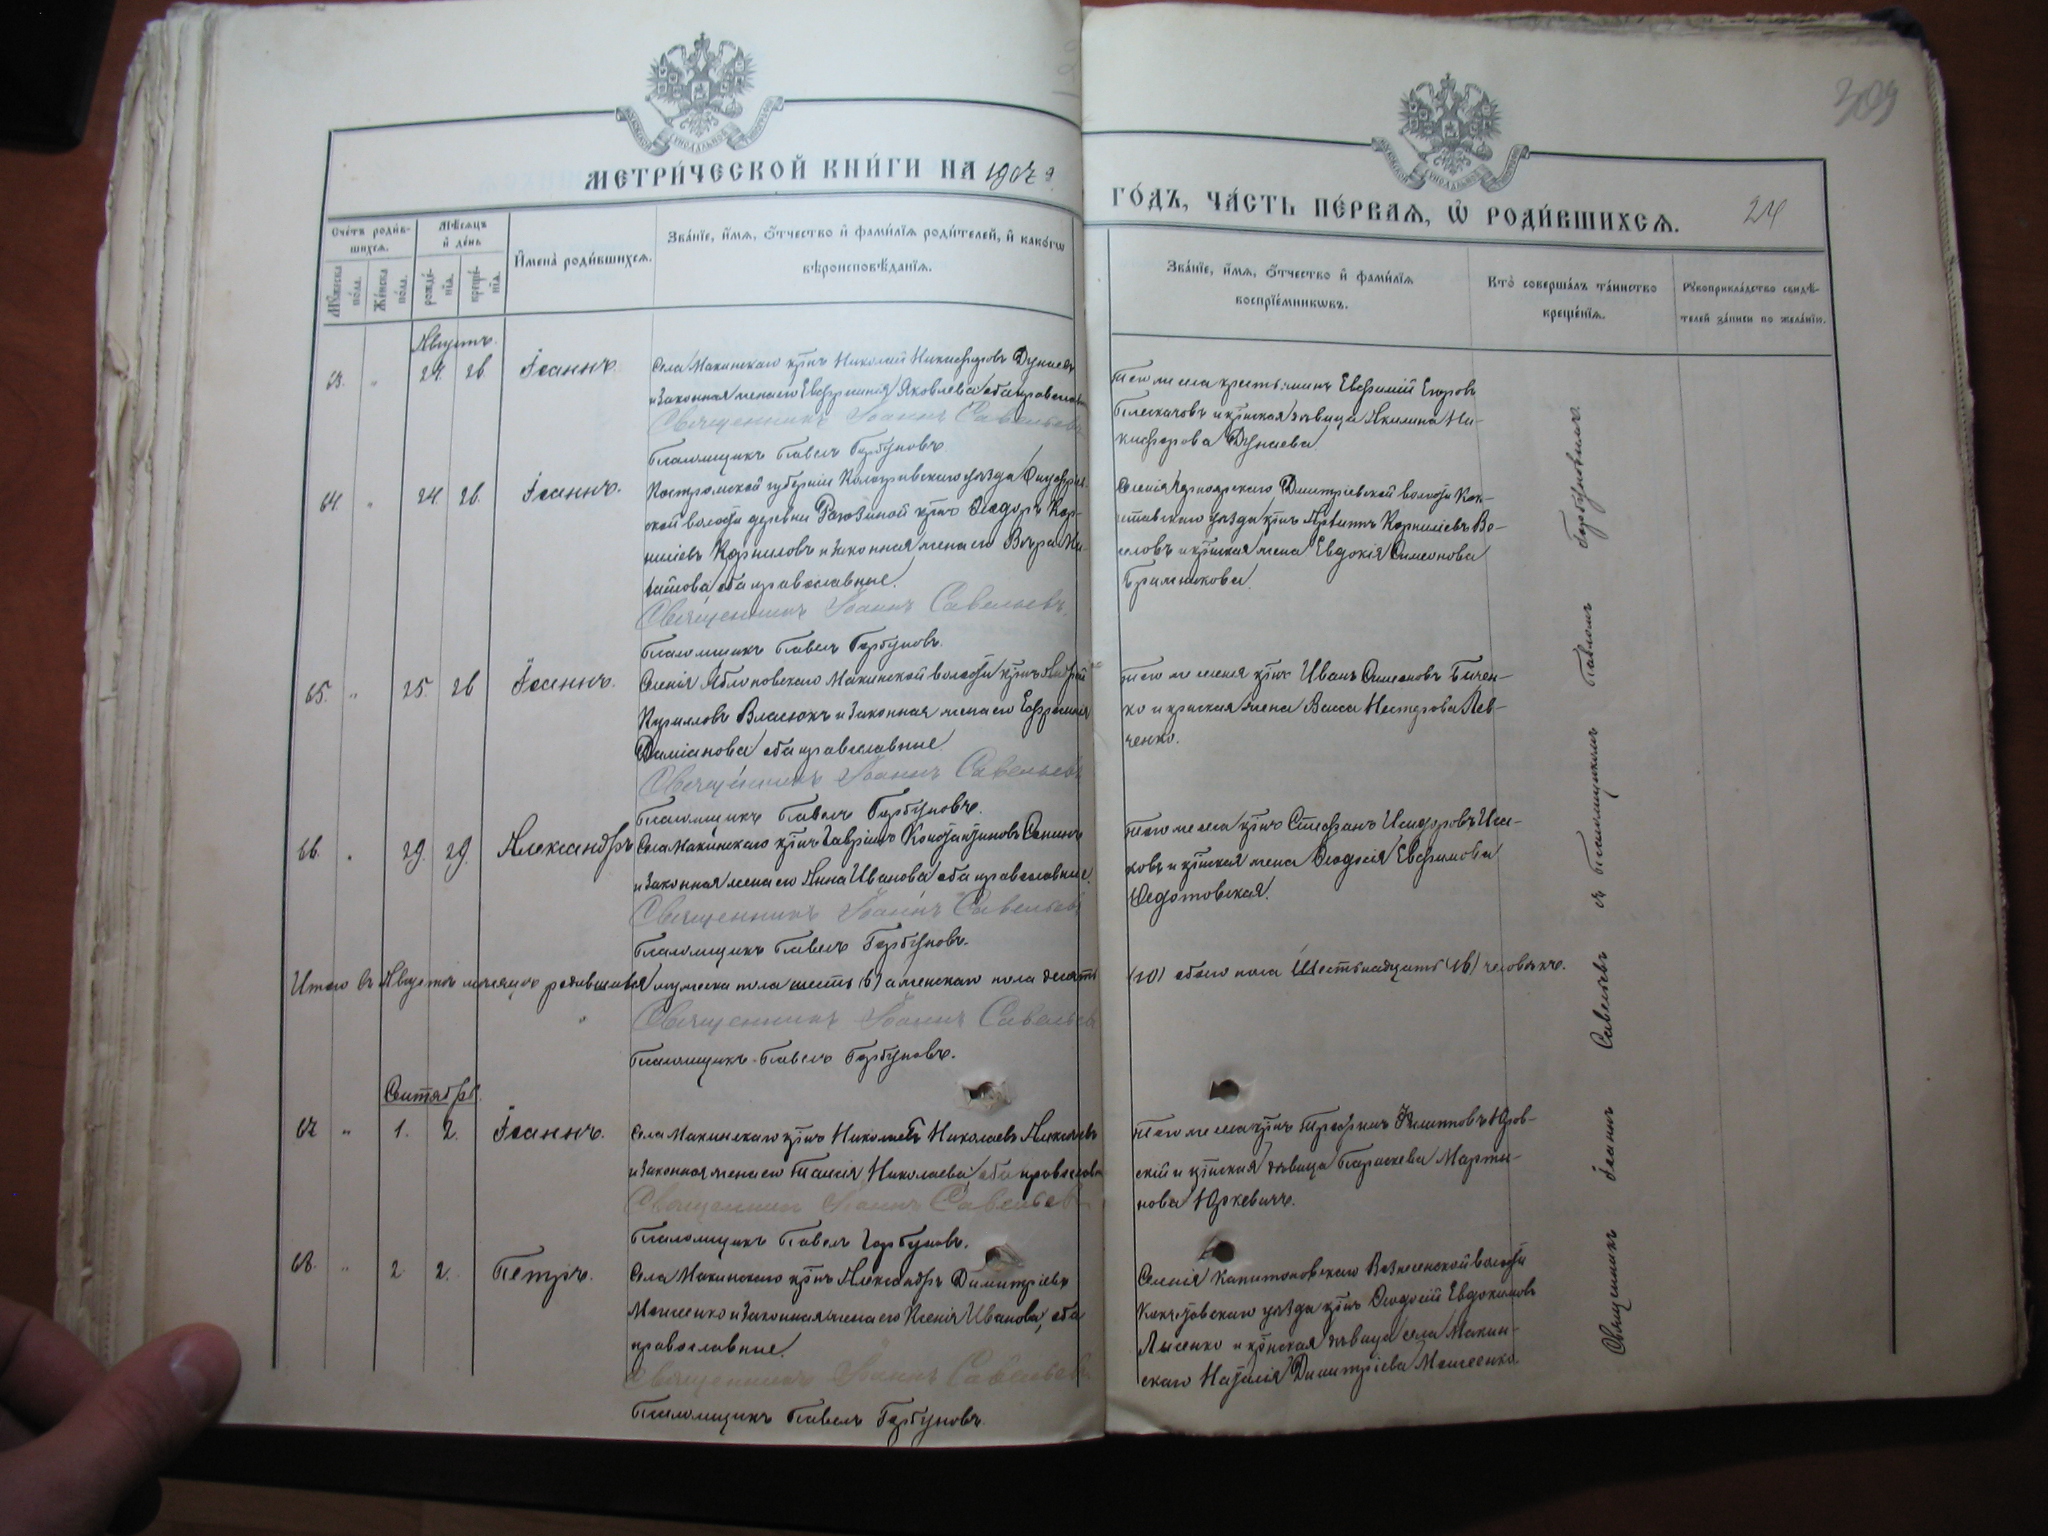 МЕТРИ́ЧЕСКОЙ КНИ́ГИ НА 1907
ГО́ДЪ, ЧА́СТЬ ПЕ́РВАѦ, Ѽ РОДИ́ВШИХСѦ.
24
309
Сче́тъ роди́в-
шихсѧ.
Мѣ́сѧцъ
и҆ де́нь
И҆мена̀ роди́вшихсѧ.
Зва́нїе, и҆́мѧ, ѻ҆́тчество и҆ фами́лїѧ роди́телей, и҆ како́гѡ
вѣроисповѣ́данїѧ.
Мꙋ́жска
по́ла.
Же́нска
по́ла.
рожде́-
нїѧ.
креще́-
нїѧ.
Зва́нїе, и҆́мѧ, ѻ҆́тчество и҆ фами́лїѧ
воспрїе́мникѡвъ.
Кто̀ соверша́лъ та́инство
креще́нїѧ.
Рꙋкоприкла́дство свидѣ́-
телей за́писи по жела́нїю.
Августъ.
63. " 24. 26. Іоаннъ.
Села Макинскаго кр-нъ Николай Никифоровъ Дунаевъ
и законная жена его Евфросинія Яковлева оба православн
Священникъ Іоаннъ Савельевъ
Псаломщикъ Павелъ Горбуновъ.
Того же села крестьянинъ Евфимій Егоровъ
и кр-нская дѣвица Акилина Ни-
кифорова Дунаева.
64. " 24. 26. Іоаннъ.
Костромской губерніи Кологривскаго уѣзда
ской волости деревни кр-нъ Ѳеодоръ Кор-
ниліевъ Корниловъ и законная жена его Вѣра
оба православные.
Священникъ Іоаннъ Савельевъ.
Псаломщикъ Павелъ Горбуновъ.
Селенія Дмитріевской волости Кок-
четавскаго уѣзда кр-нъ Корниліевъ
и кр-нская жена Евдокія Симеонова
65. " 25. 26 Іоаннъ.
Селенія Яблоновскаго Макинской волости кр-нъ Андрей
Кирилловъ Власюкъ и законная жена его Евфросинія
Даміанова оба православные.
Священникъ Іоаннъ Савельевъ
Псаломщикъ Павелъ Горбуновъ.
Того же селенія кр-нъ Иванъ Симеоновъ Бичен-
ко и кр-нская жена Васса Нестерова Лев-
ченко.
66. " 29. 29. Александръ
Села Макинскаго кр-нъ Гавріилъ Константиновъ Сенинъ
и законная жена его Анна Иванова оба православные.
Священникъ Іоаннъ Савельевъ
Псаломщикъ Павелъ Горбуновъ.
Того же села кр-нъ Стефанъ Исидоровъ Иса-
ковъ и кр-нская жена Ѳеодосія Евфимова
Ѳедотовская.
Итого въ Августѣ мѣсяцѣ родившихся мужеска пола шесть (6) а женскаго пола десять
(10) обоего пола Шестьнадцать (16) человѣкъ.
Священникъ Іоаннъ Савельевъ
Псаломщикъ Павелъ Горбуновъ.
Сентябрь.
67 " 1. 2. Іоаннъ.
Села Макинскаго кр-нъ Николай Николаевъ Алексѣевъ
и законная жена его Таисія Николаева, оба православн
Священникъ Іоаннъ Савельевъ
Псаломщикъ Павелъ Горбуновъ.
Того же села кр-нъ Трофимъ Филипповъ Юров-
скій и кр-нская дѣвица Параскева Марти-
нова Юркевичъ.
68. " 2 2. Петръ.
Села Макинскаго кр-нъ Александръ Димитріевъ
Моисеенко и законная жена его Ксенія Иванова, оба
православные.
Священникъ Іоаннъ Савельевъ
Псаломщикъ Павелъ Горбуновъ.
Селенія Капитоновскаго Вознесенской волости
Кокчетавскаго уѣзда кр-нъ Ѳеодосій Евдокимовъ
Лысенко и кр-нская дѣвица села Макин-
скаго Наталія Димитріева Моисеенко.
Священникъ Іоаннъ Савельевъ съ псаломщикомъ Павломъ Горбуновымъ.